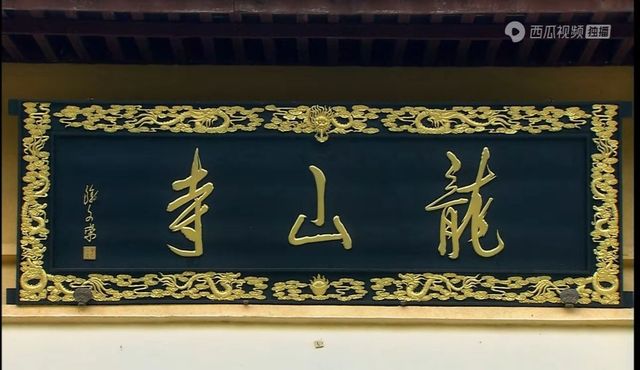 西瓜视频 独播
龍山寺